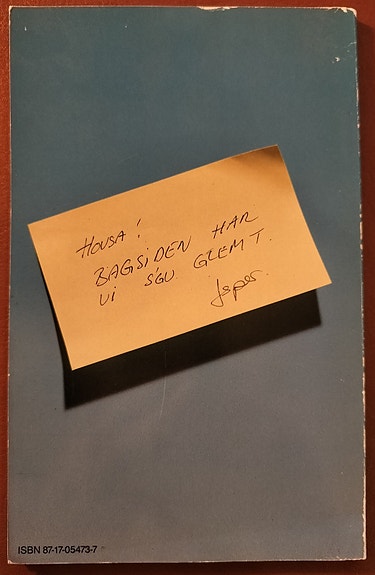 HOVSA!
BAGSIDEN HAR
VI S'GU GLEMT.
Jesper.
ISBN 87-17-05473-7